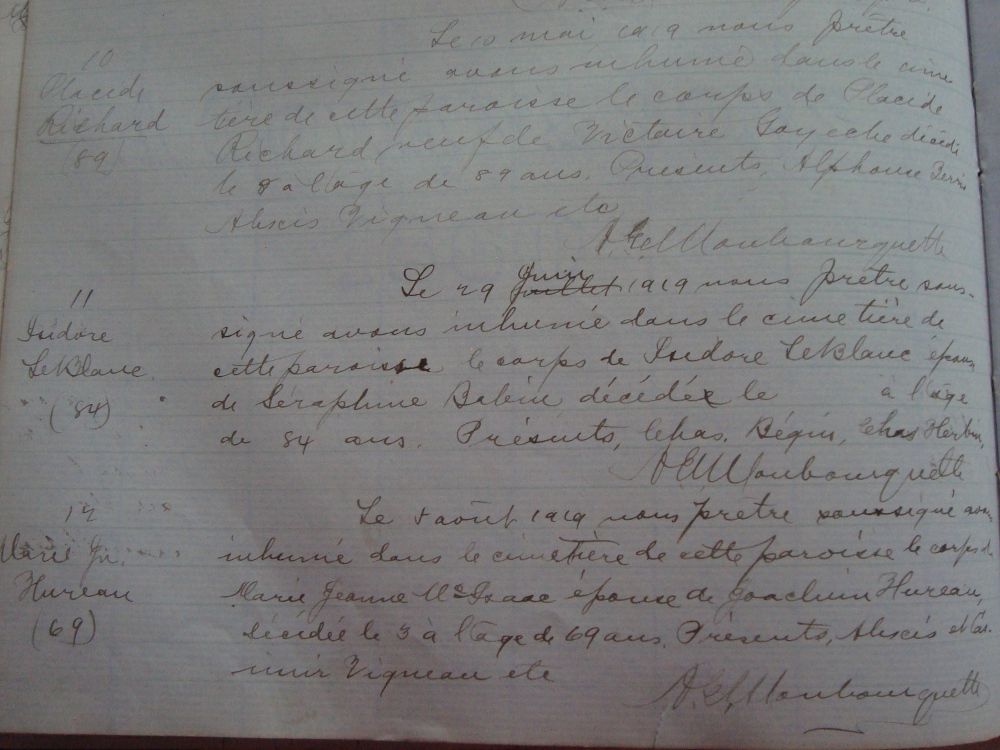 Le 10 mai 1919 nous prêtre
10
Placide
Richard
(89)
soussigné avons inhumé dans le cime
tière de cette paroisse le corps de Placide
Richard, veuf de Victoire décédé
le 8 à l'âge de 89 ans. Présents, Alphonse
Alexis Vigneau etc
A E Monbourquette
11
Isidore
LeBlanc
(84)
Le 29 juin juillet 1919 nous prêtre sous-
signé avons inhumé dans le cimetière de
cette paroisse le corps de Isidore LeBlanc époux
de Séraphine Babin décédée le à l'âge
de 84 ans. Présents, Chas. Bégin, Chas
A E Monbourquette
12
Marie Jn.
Hureau
(69)
Le août 1919 nous prêtre soussigné avons
inhumé dans le cimetière de cette paroisse le corps de
Marie Jeanne McIsaac épouse de Joachim Hureau,
décédée le 3 à l'âge de 69 ans. Présents, Alexis et Cas.
imir Vigneau etc
A E Monbourquette